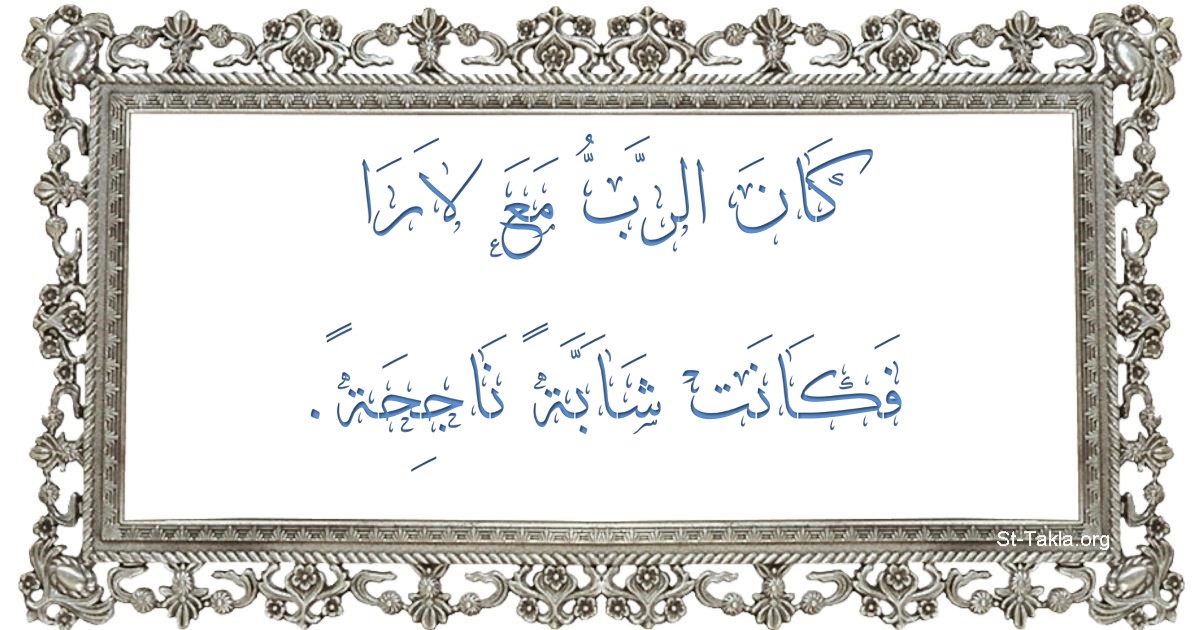 كَانَ الرَّبُّ مَعَ لاَرَا
فَكَانَت شَابَّةً نَاجِحَةً.
St-Takla.org